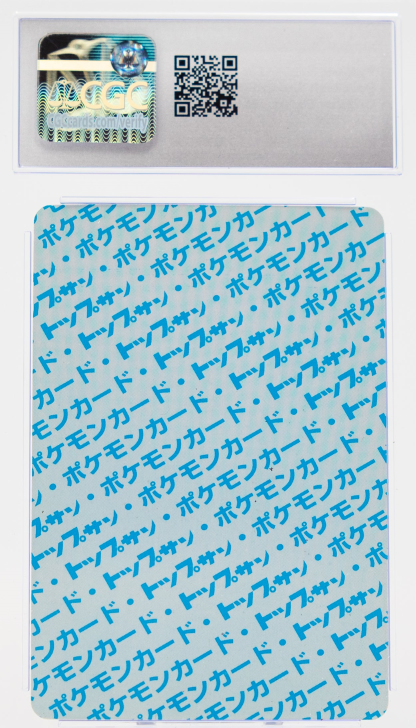 CGC
cgccards.com/verify
ポケモン
ン・ポケモンカ
プサン・ポケモンカー
トップサン・ポケモンカード
ド・トップサン・ポケモンカー
カード・トップサン・ポケモン
モンカード・トップサン・ポケ
ポケモンカード・トップサン・ポ
・ポケモンカード・トップサン
サン・ポケモンカード・トップ
トップサン・ポケモンカード・ト
トップサン・ポケモンカード・
ド・トップサン・ポケモンカード
カード・トップサン・ポケモン
ンカード・トップサン・ポケモ
ケモンカード・トップサン・ポ
ポケモンカード・トップサン・
ポケモンカード・トップサン